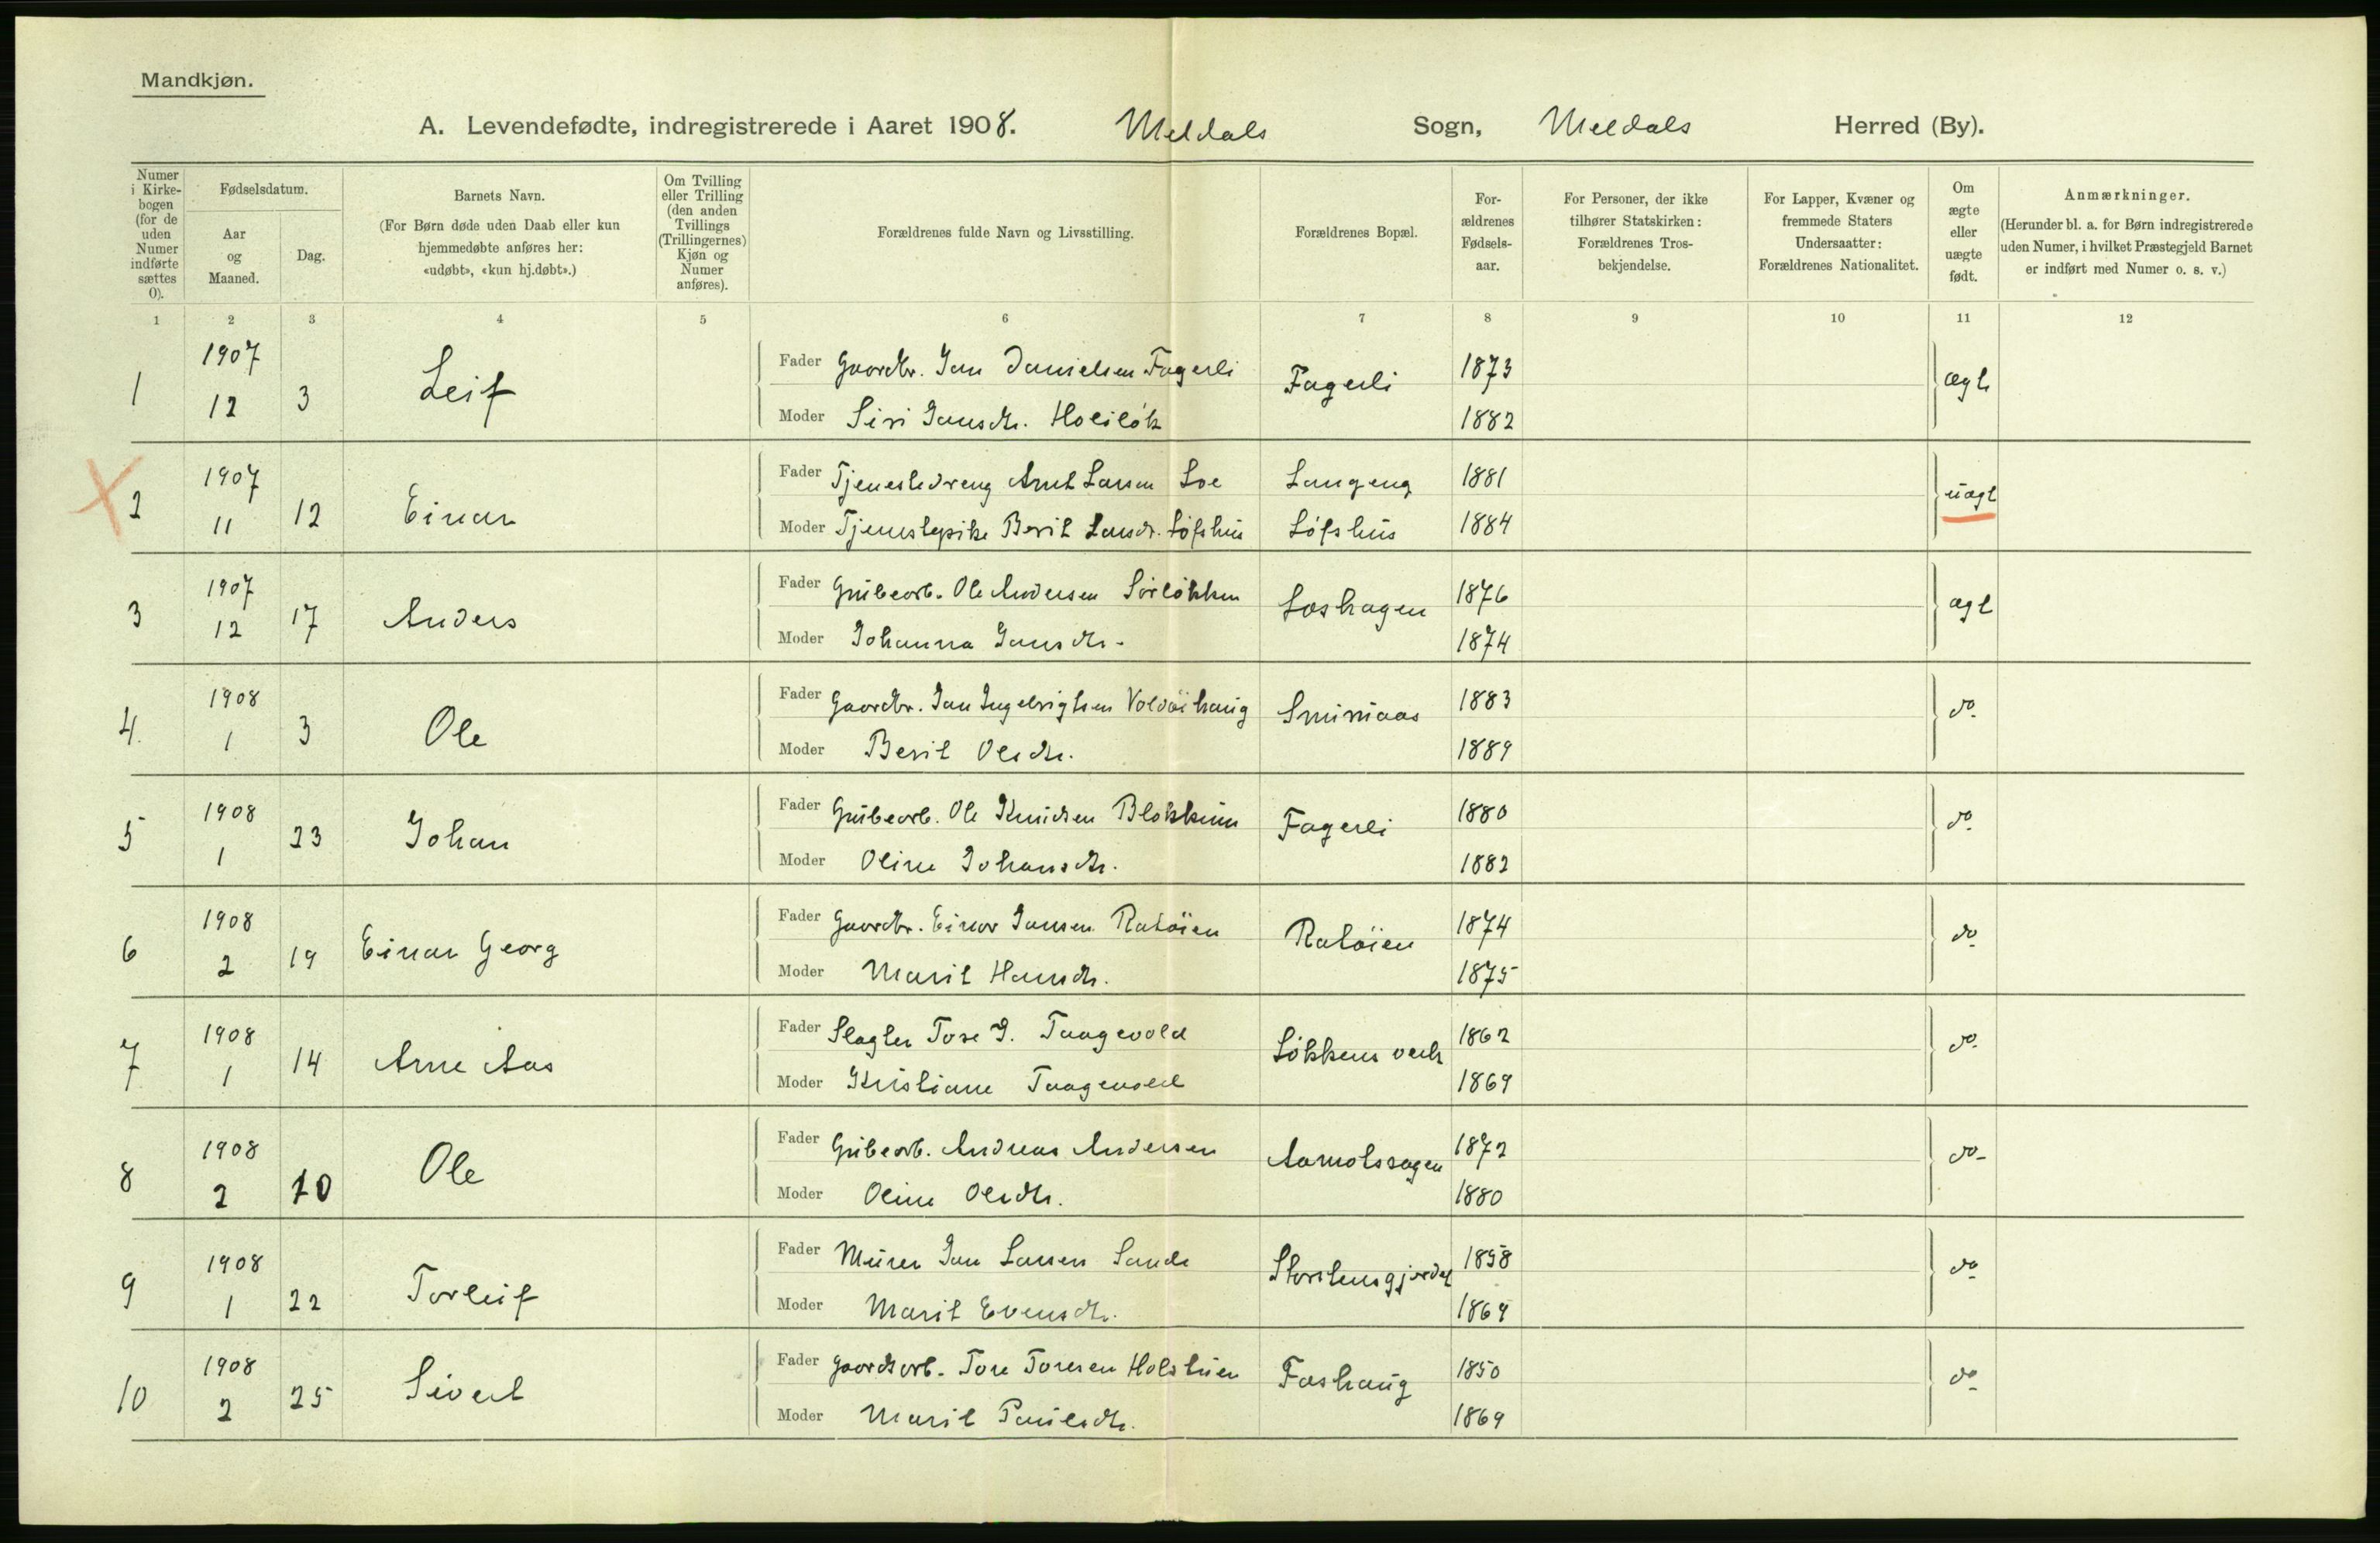 Mandkjøn.
A. Levendefødte, indregistrerede i Aaret 1908. Meldals Sogn, Meldals Herred (By).
Numer i Kirkebogen (for de uden Numer indførte sættes 0).
Fødselsdatum.
Aar og Maaned.
Dag.
Barnets Navn.
(For Børn døde uden Daab eller kun hjemmedøbte anføres her: «udøbt», «kun hj.døbt».)
Om Tvilling eller Trilling (den anden Tvillings (Trillingernes) Kjøn og Numer anføres).
Forældrenes fulde Navn og Livsstilling.
Forældrenes Bopæl.
Forældrenes Fødselsaar.
For Personer, der ikke tilhører Statskirken: Forældrenes Trosbekjendelse.
For Lapper, Kvæner og fremmede Staters Undersaatter: Forældrenes Nationalitet.
Om ægte eller uægte født.
Anmærkninger.
(Herunder bl. a. for Børn indregistrerede uden Numer, i hvilket Præstegjeld Barnet er indført med Numer o. s. v.)
1 2 3 4 5 6 7 8 9 10 11 12
1 1907 12 3 Leif Fader Gaardbr. Jan Danielsen Fagerli Fagerli 1873 ægt
Moder Siri Jansdtr. Holiløk 1882
2 1907 11 12 Einar Fader Tjenestedreng Arnt Larsen Loe Langeng 1881 uægt
Moder Tjenestepike Berit Larsdr. Løfshus Løfshus 1884
3 1907 12 17 Anders Fader Grubearb. Ole Andersen Sørløkken Loshagen 1876 ægt
Moder Johanna Jansdtr. 1874
4. 1908 1 3 Ole Fader Gaardbr. Jan Ingebrigtsen Voldøihaug Sminiaas 1883 do.
Moder Berit Olsdtr. 1889
5 1908 1 23 Johan Fader Grubearb. Ole Knudsen Blokkum Fagerli 1880 do.
Moder Oline Johansdtr. 1882
6 1908 2 19 Einar Georg Fader Gaardbr. Einar Jansen Ratøien Ratøien 1874 do.
Moder Marit Hansdtr. 1875
7 1908 1 14 Arne Aas Fader Slagter Tore J. Taagevold Løkkens verk 1862 do.
Moder Kristiane Taagevold 1869
8 1908 2 10 Ole Fader Grubearb. Andreas Andersen Aamotssagen 1872 do.
Moder Oline Olsdtr. 1880
9 1908 1 22 Torleif Fader Murer Jan Larsen Sande Storstensgjerdet 1858 do.
Moder Marit Evensdtr. 1869
10 1908 2 25 Sivert Fader Gaardsarb. Tore Toresen Holstuen Foshaug 1850 do.
Moder Marit Paulsdtr. 1869